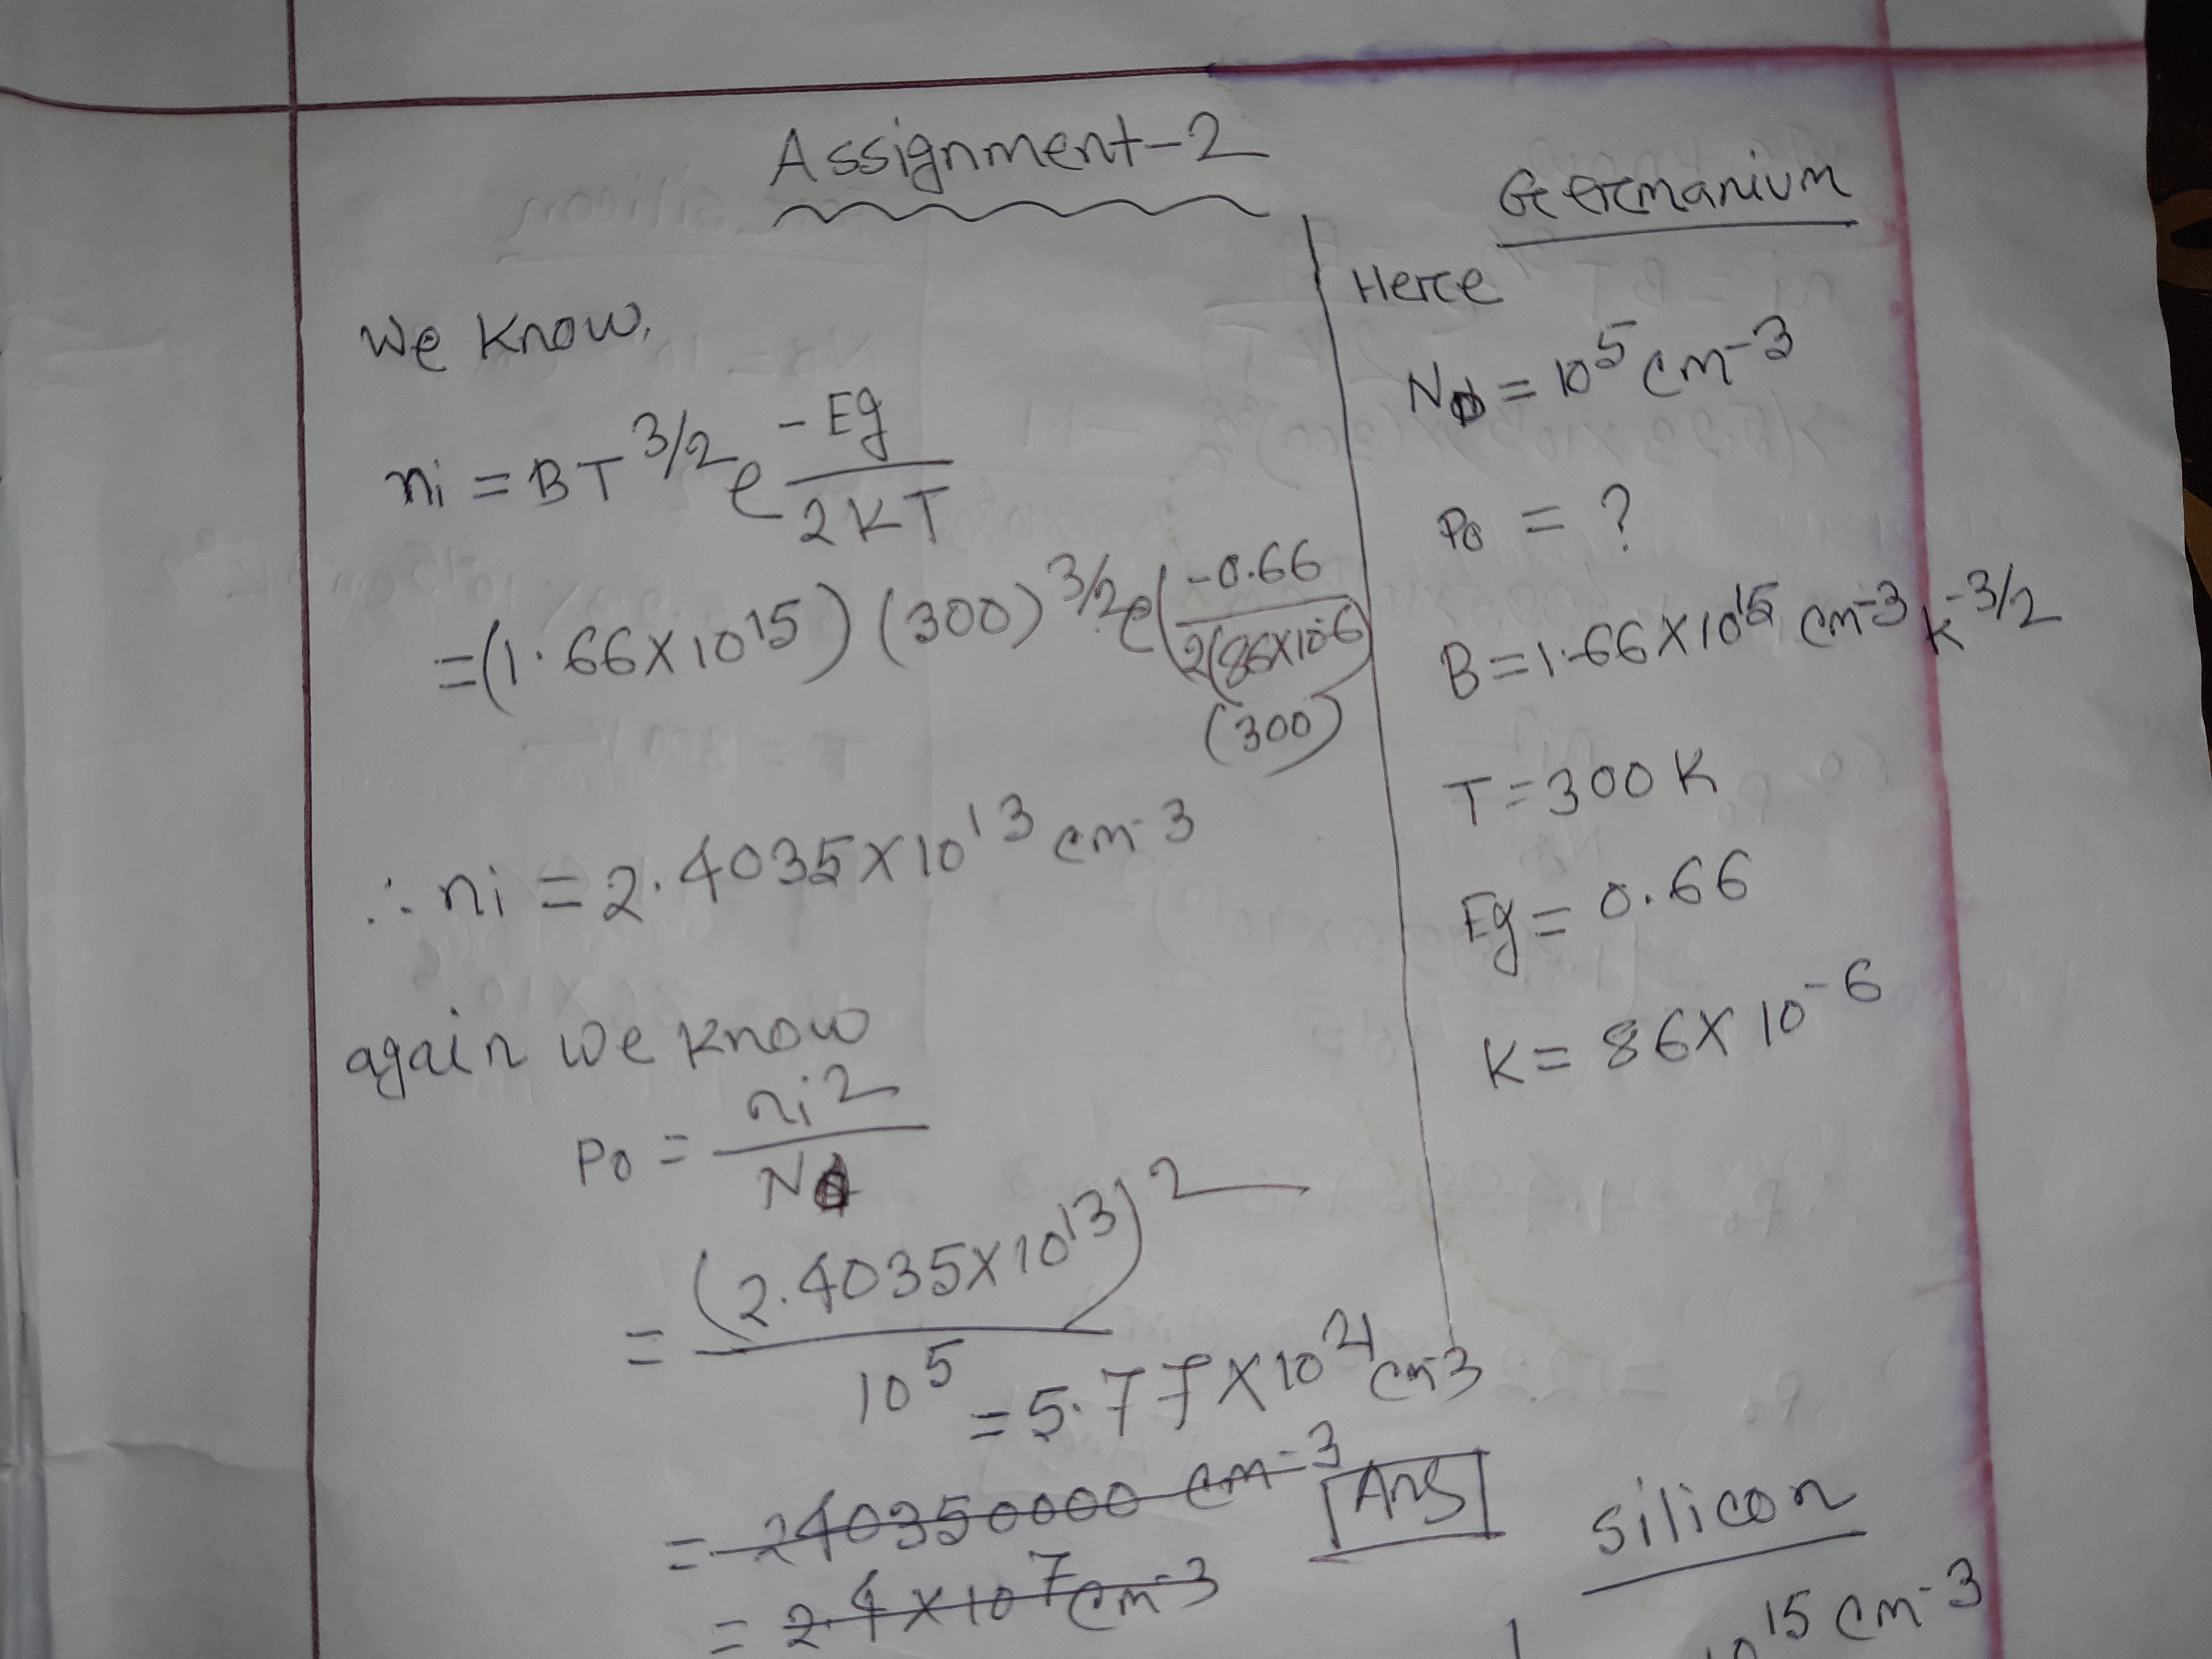 Assignment-2
We know,
ni = BT^3/2 e^-Eg/2KT
=(1.66×10^15) (300)^3/2 e(-0.66/2(86×10^-6)(300)
∴ ni = 2.4035×10^13 cm-3
again we know
Po = ni^2/Nd
= (2.4035×10^13)^2/10^5
= 5.77×10^21 cm-3
= 240350000 cm-3
[Ans]
= 2.4×10^7 cm-3
Germanium
Here
Nd = 10^5 cm-3
Po = ?
B=1.66×10^15 cm-3 k-3/2
T=300 K
Eg= 0.66
K= 86×10^-6
silicon
10^15 cm-3